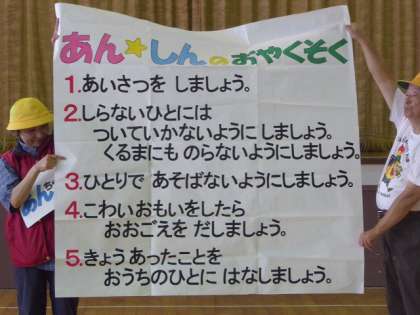 あん★しんのおやくそく
1.あいさつを しましょう。
2.しらないひとには
ついていかないように しましょう。
くるまにも のらないようにしましょう。
3.ひとりで あそばないようにしましょう。
4.こわいおもいをしたら
おおごえを だしましょう。
5.きょう あったことを
おうちのひとに はなしましょう。
あん